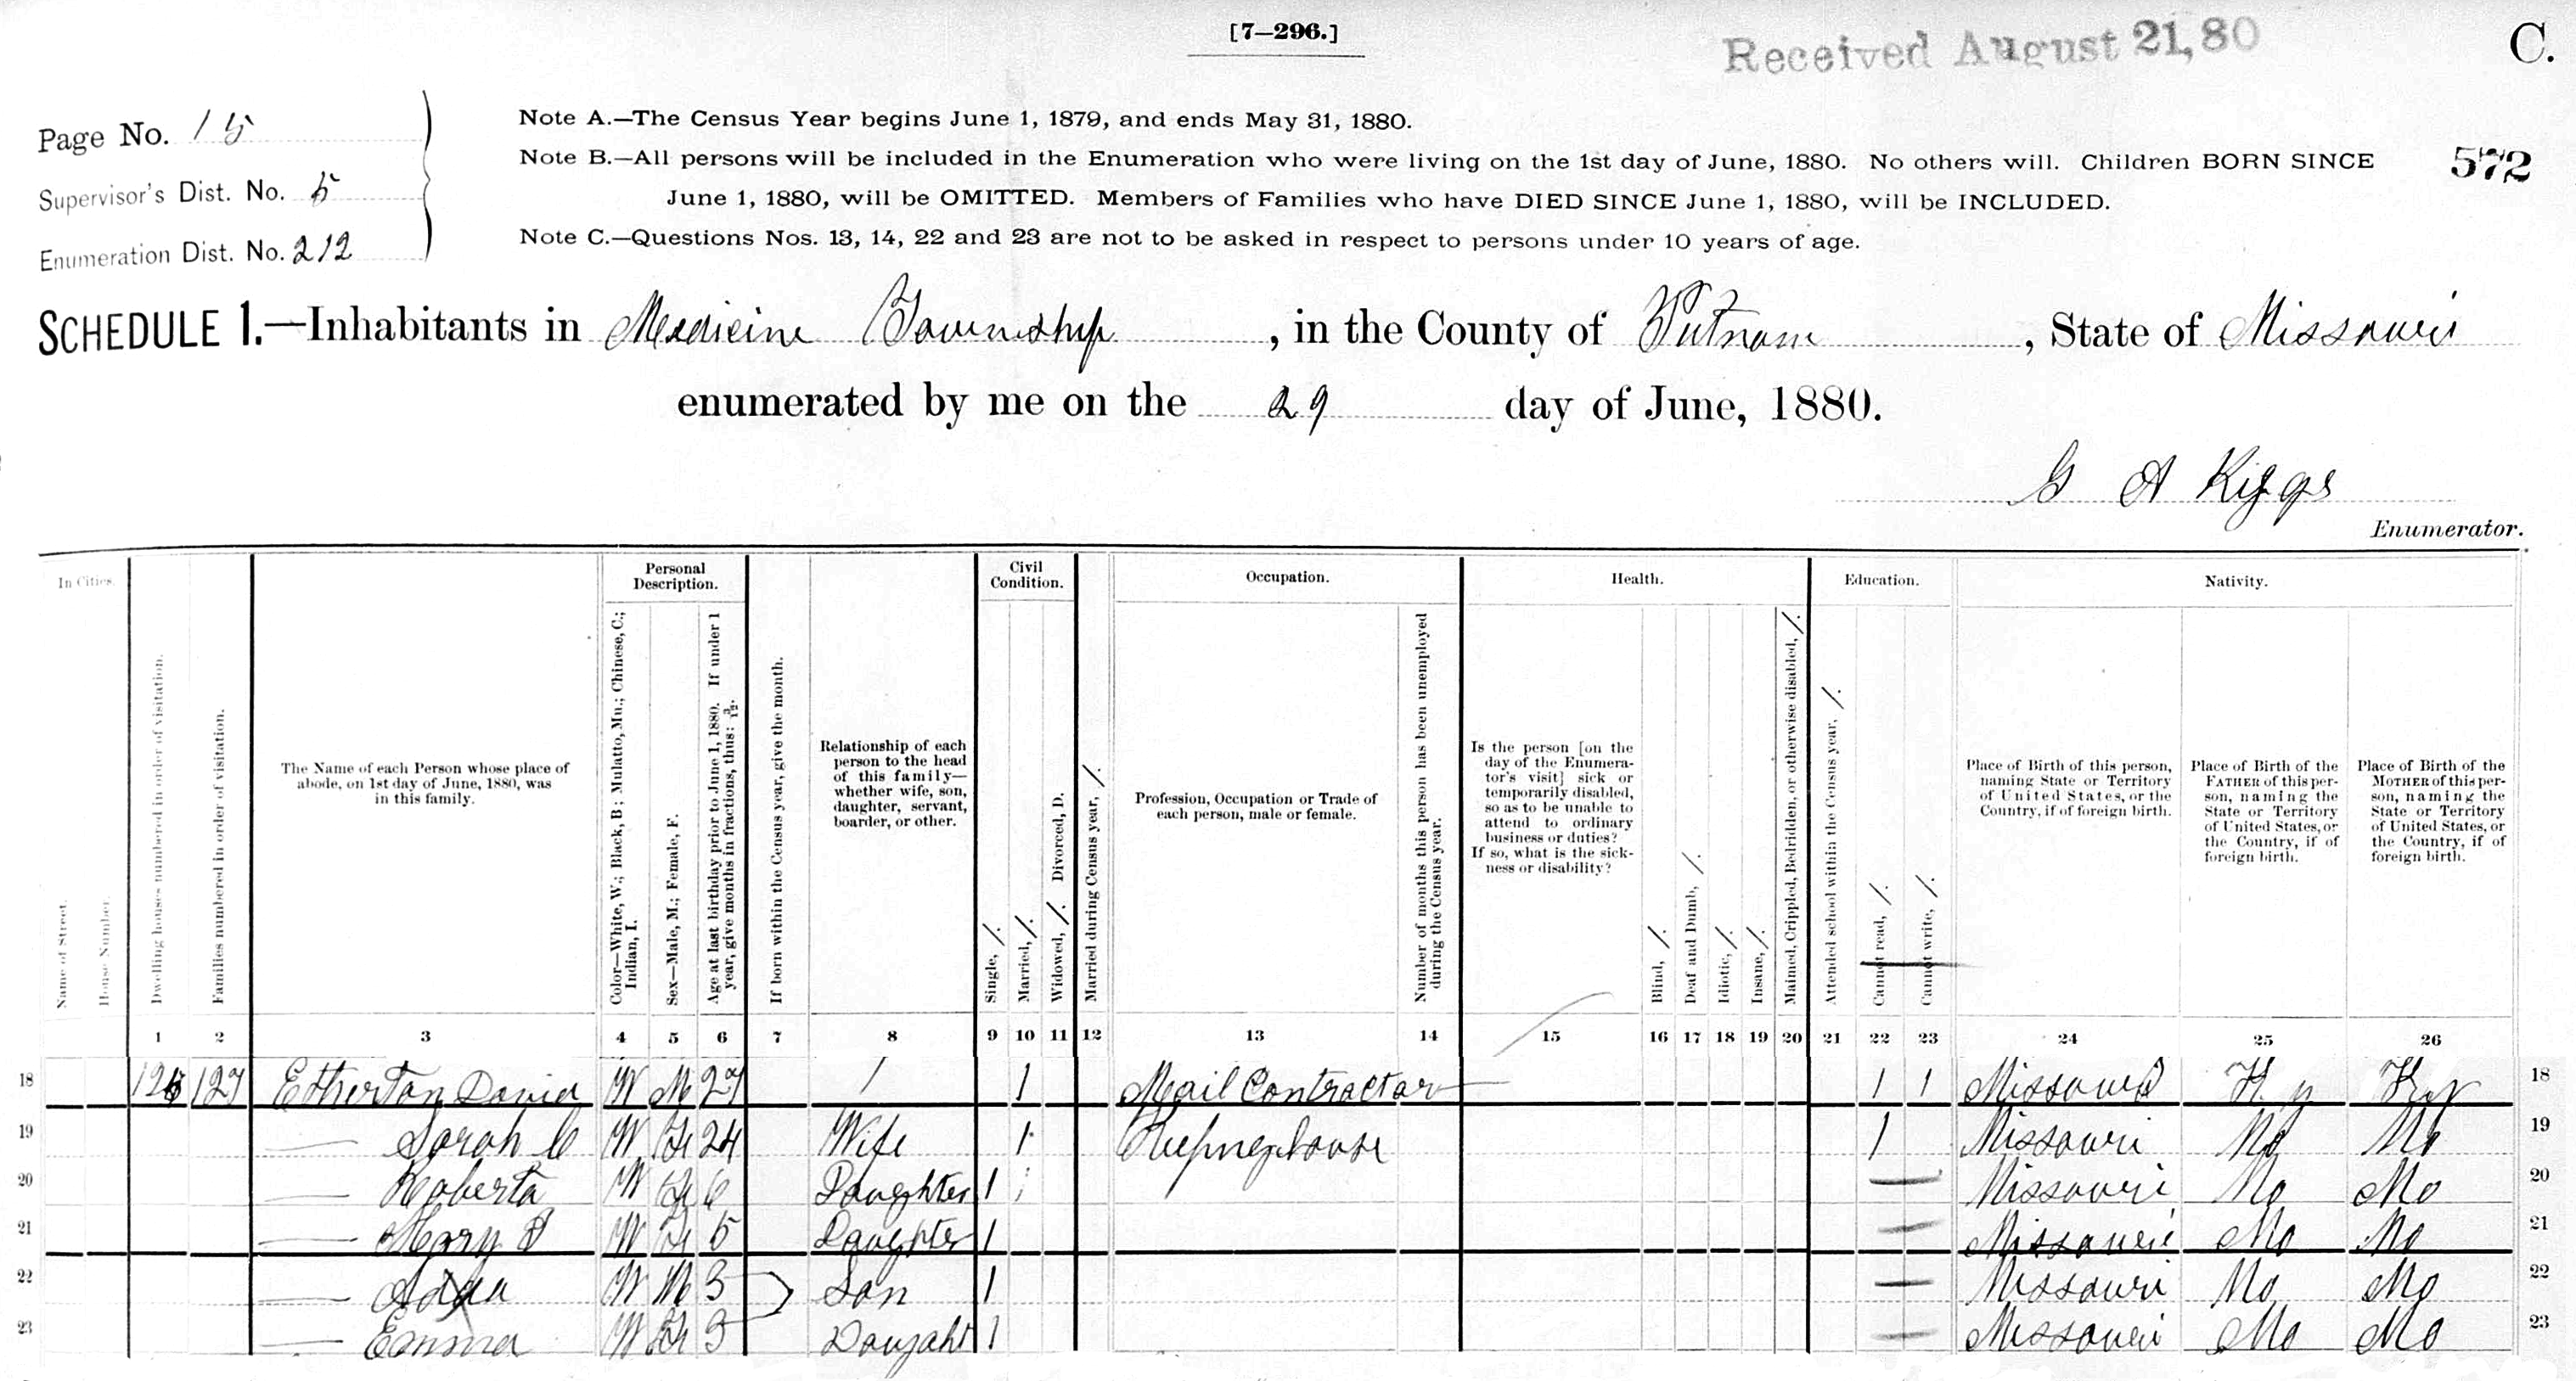 [7—296.]
Received August 21, 80
C.
Page No. 15
Supervisor's Dist. No. 5
Enumeration Dist. No. 212
Note A.—The Census Year begins June 1, 1879, and ends May 31, 1880.
Note B.—All persons will be included in the Enumeration who were living on the 1st day of June, 1880. No others will. Children BORN SINCE
June 1, 1880, will be OMITTED. Members of Families who have DIED SINCE June 1, 1880, will be INCLUDED.
Note C.—Questions Nos. 13, 14, 22 and 23 are not to be asked in respect to persons under 10 years of age.
572
SCHEDULE 1.—Inhabitants in Medicine Township, in the County of Putnam, State of Missouri
enumerated by me on the 29 day of June, 1880.
G A Kiggs
Enumerator.
In Cities.
Name of Street.
House Number.
Dwelling houses numbered in order of visitation.
Families numbered in order of visitation.
The Name of each Person whose place of
abode, on 1st day of June, 1880, was
in this family.
Personal
Description.
Color—White, W.; Black, B; Mulatto, Mu.; Chinese, C.;
Indian, I.
Sex—Male, M.; Female, F.
Age at last birthday prior to June 1, 1880. If under 1
year, give months in fractions, thus: 3/12.
If born within the Census year, give the month.
Relationship of each
person to the head
of this family—
whether wife, son,
daughter, servant,
boarder, or other.
Civil
Condition.
Single, /.
Married, /.
Widowed, /. Divorced, D.
Married during Census year, /.
Occupation.
Profession, Occupation or Trade of
each person, male or female.
Number of months this person has been unemployed
during the Census year.
Health.
Is the person [on the
day of the Enumera-
tor's visit] sick or
temporarily disabled,
so as to be unable to
attend to ordinary
business or duties?
If so, what is the sick-
ness or disability?
Blind, /.
Deaf and Dumb, /.
Idiotic, /.
Insane, /.
Maimed, Crippled, Bedridden, or otherwise disabled, /.
Education.
Attended school within the Census year, /.
Cannot read, /.
Cannot write, /.
Nativity.
Place of Birth of this person,
naming State or Territory
of United States, or the
Country, if of foreign birth.
Place of Birth of the
FATHER of this per-
son, naming the
State or Territory
of United States, or
the Country, if of
foreign birth.
Place of Birth of the
MOTHER of this per-
son, naming the
State or Territory
of United States, or
the Country, if of
foreign birth.
1 2 3 4 5 6 7 8 9 10 11 12 13 14 15 16 17 18 19 20 21 22 23 24 25 26
18 126 127 Etherton David W M 27 / 1 Mail Contractor 1 1 Missouri Ky Ky 18
19 — Sarah C W F 24 Wife 1 Keeping house 1 Missouri Mo Mo 19
20 — Roberta W F 6 Daughter 1 Missouri Mo Mo 20
21 — Mary W F 5 Daughter 1 Missouri Mo Mo 21
22 — W M 3 Son 1 Missouri Mo Mo 22
23 — Emma W F 3 Daught 1 Missouri Mo Mo 23